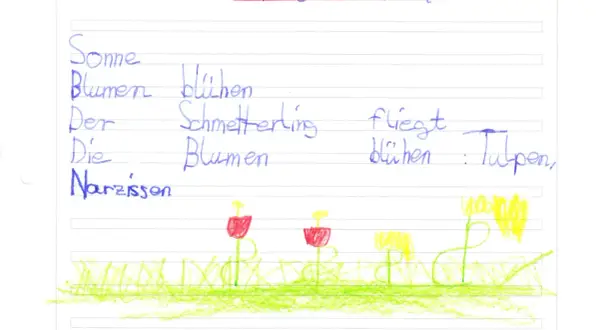 Sonne
Blumen blühen
Der Schmetterling fliegt
Die Blumen blühen : Tulpen,
Narzissen